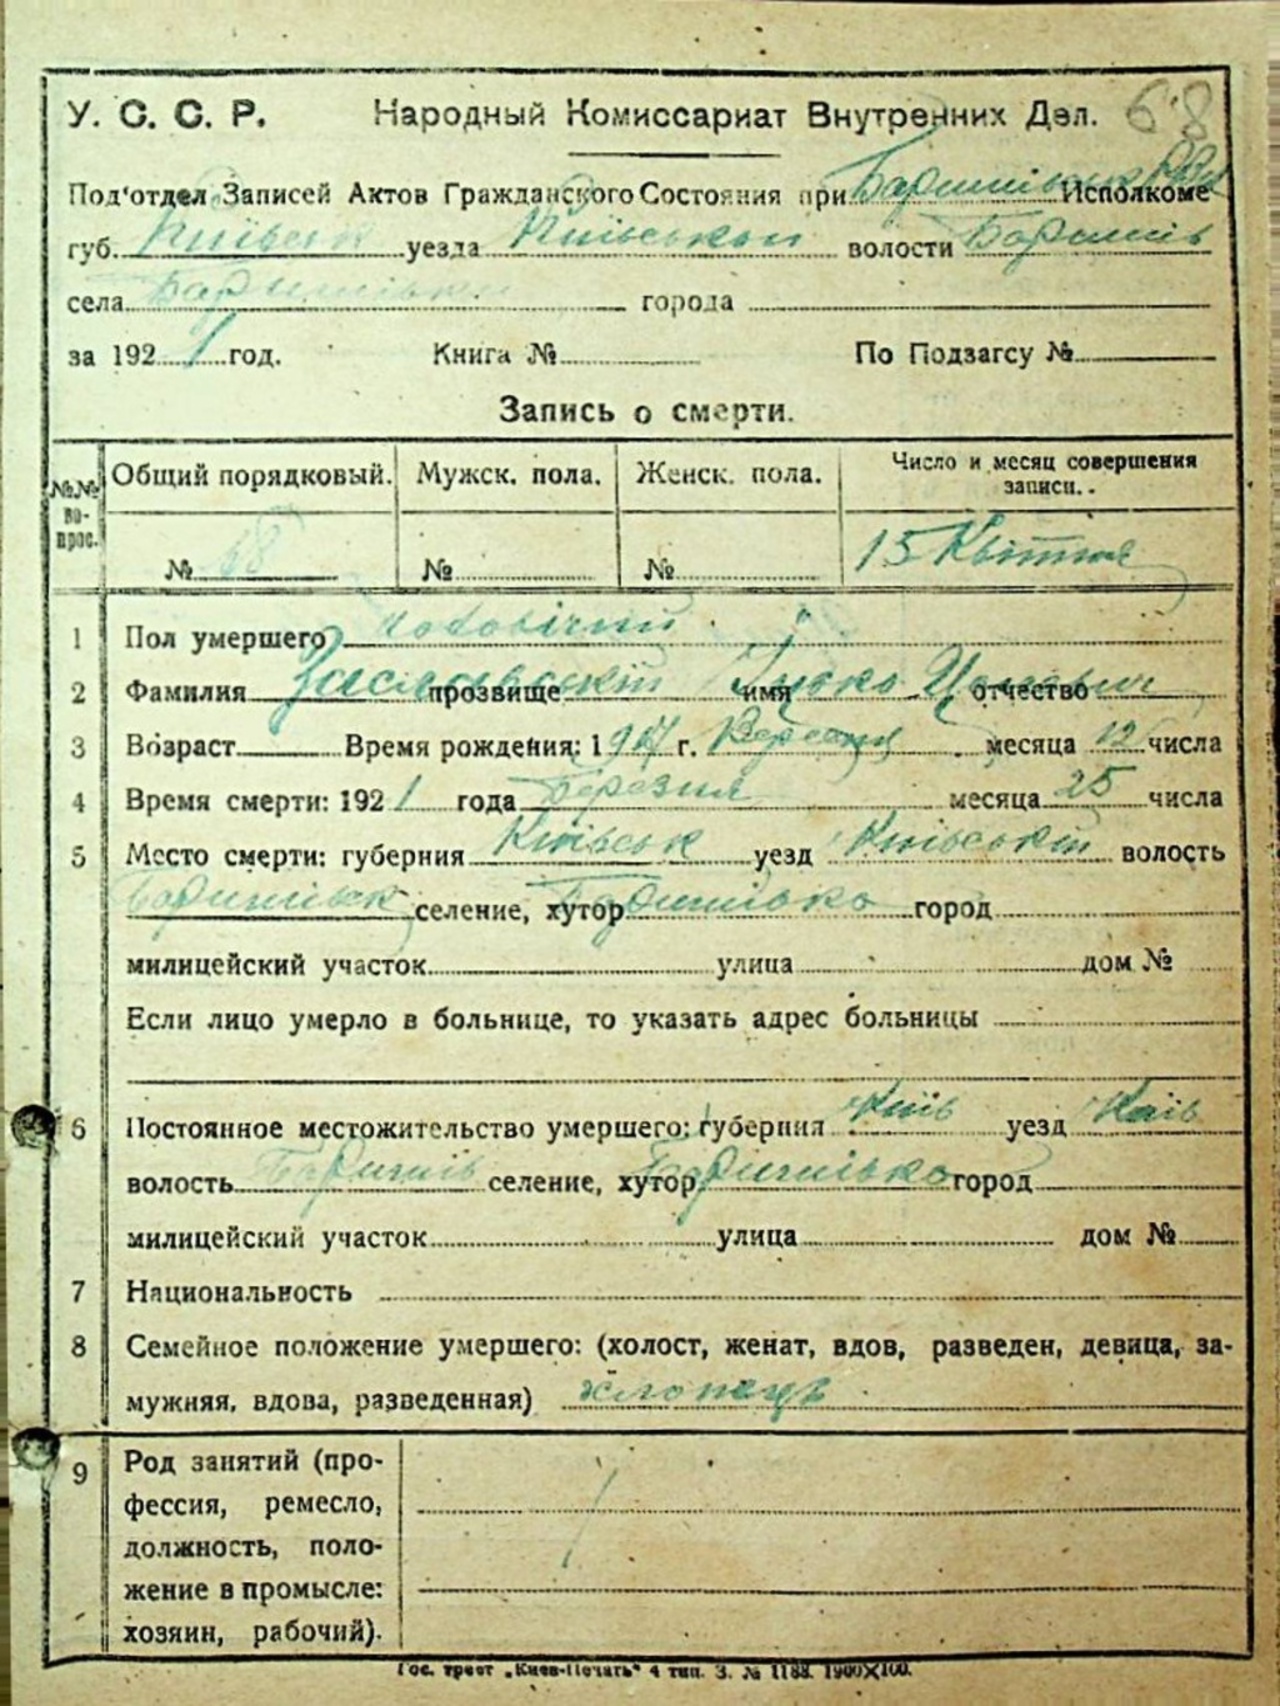 68
У. С. С. Р. Народный Комиссариат Внутренних Дел.
Под'отдел Записей Актов Гражданского Состояния при Исполкоме
губ. Київськ уезда Київський волости Баришів
села Баришівки города
за 1921 год. Книга № По Подзагсу №
Запись о смерти.
№№ вопрос. Общий порядковый. Мужск. пола. Женск. пола. Число и месяц совершения записи.
№ 68 № № 15 Квітня
1 Пол умершего чоловічий
2 Фамилия Заславський прозвище имя отчество
3 Возраст Время рождения: 19 г. месяца 12 числа
4 Время смерти: 1921 года Березня месяца 25 числа
5 Место смерти: губерния Київськ уезд Київський волость
Баришівськ селение, хутор Баришівка город
милицейский участок улица дом №
Если лицо умерло в больнице, то указать адрес больницы
6 Постоянное местожительство умершего: губерния Київ уезд Київ
волость Баришів селение, хутор Баришівка город
милицейский участок улица дом №
7 Национальность
8 Семейное положение умершего: (холост, женат, вдов, разведен, девица, за-
мужняя, вдова, разведенная) хлопець
9 Род занятий (про-
фессия, ремесло,
должность, поло-
жение в промысле:
хозяин, рабочий).
Гос. трест „Киев-Печать" 4 тип. З. № 1188. 1900Х100.